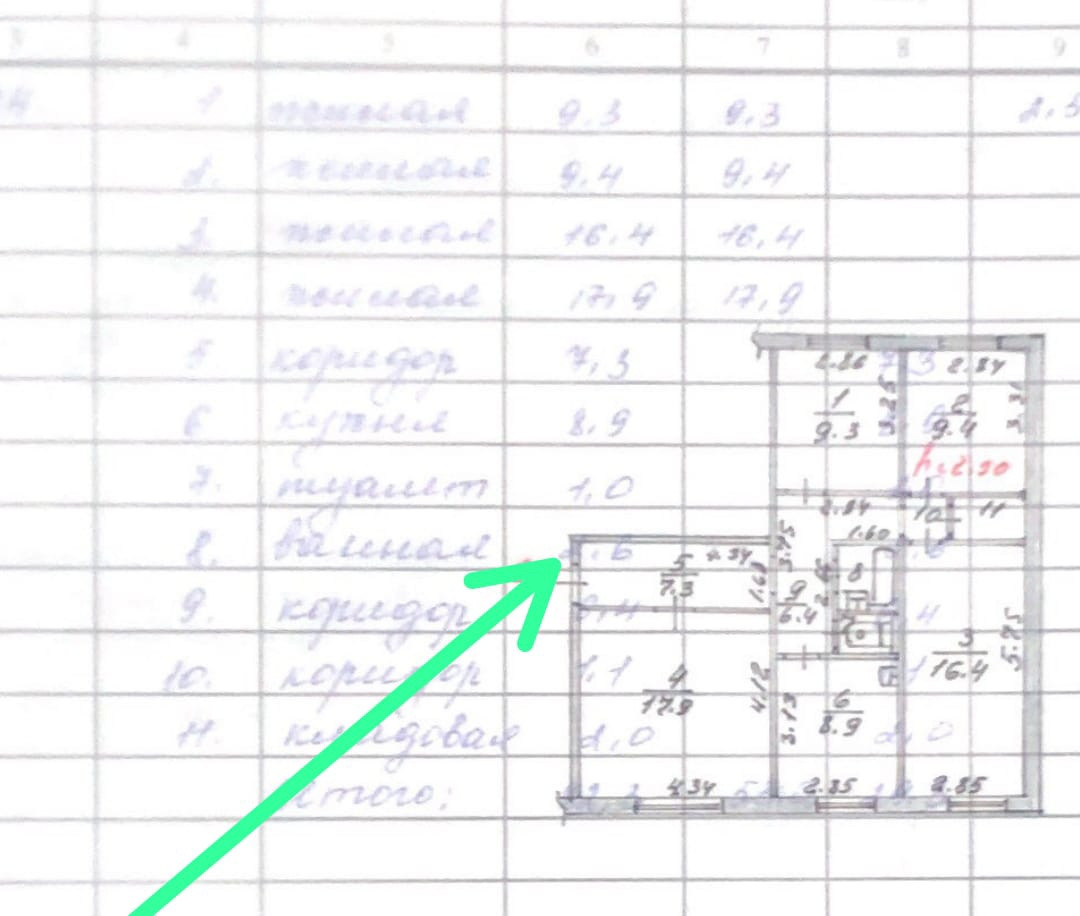 3 4 5 6 7 8 9
1 жилая 9.3 9,3
2. жилая 9.4 9,4
3. жилая 16,4 16,4
4. жилая 17,9 17,9
5 коридор 7,3
6 кухня 8.9
7. туалет 1,0
8. ванная
9. коридор
10. коридор 1,1
11. кладовая 2,0
Итого:
2.86 2.84
1 3.25 2
9.3 9.4
h=2.50
2.84 10 11
1.60
5 4.34 3.75
7.3 1.68 9 8
6.4
3 5.75
16.4
4 4.12
17.9
6 3.13
8.9
4.34 2.85 2.85